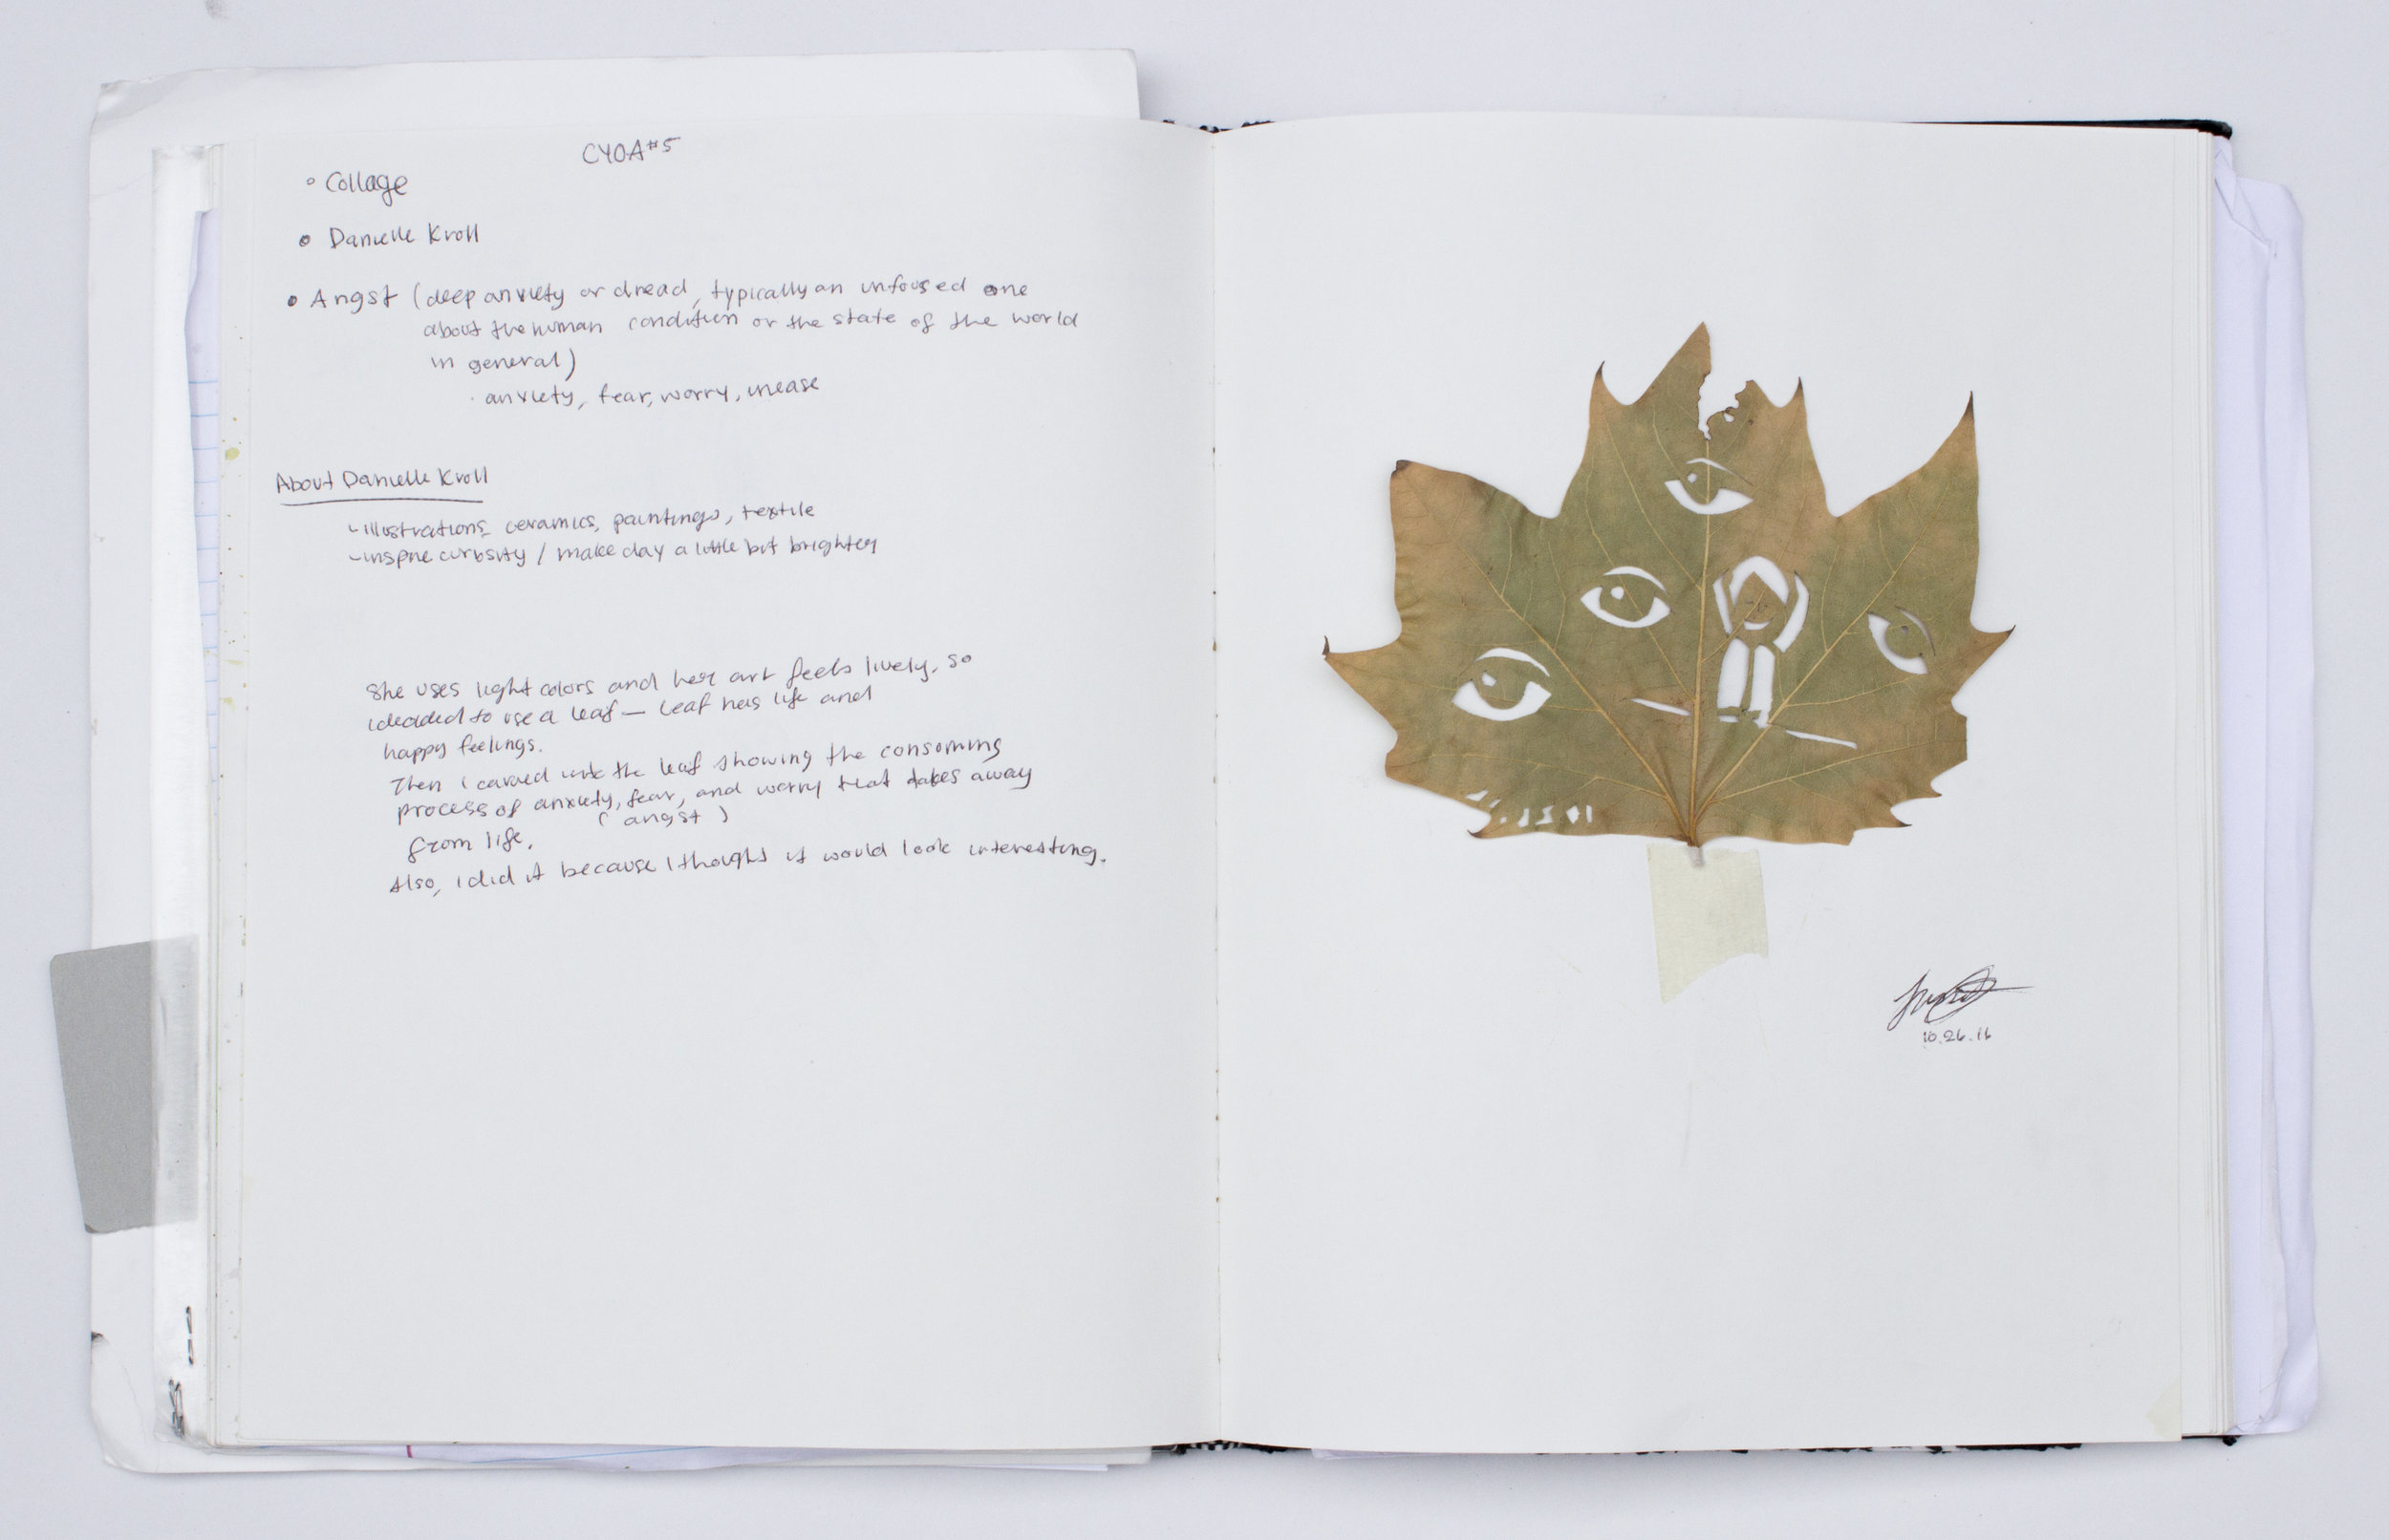 CYOA #5
° Collage
• Danielle Kroll
• Angst (deep anxiety or dread, typically an unfocused one
about the human condition or the state of the world
in general)
· anxiety, fear, worry, unease
About Danielle Kroll
- illustrations, ceramics, paintings, textile
- inspire curiosity / make day a little bit brighter
She uses light colors and her art feels lively. so
i decided to use a leaf — leaf has life and
happy feelings.
Then i carved into the leaf showing the consuming
process of anxiety, fear, and worry that takes away
(angst)
from life.
Also, i did it because I thought it would look interesting.
10.26.16